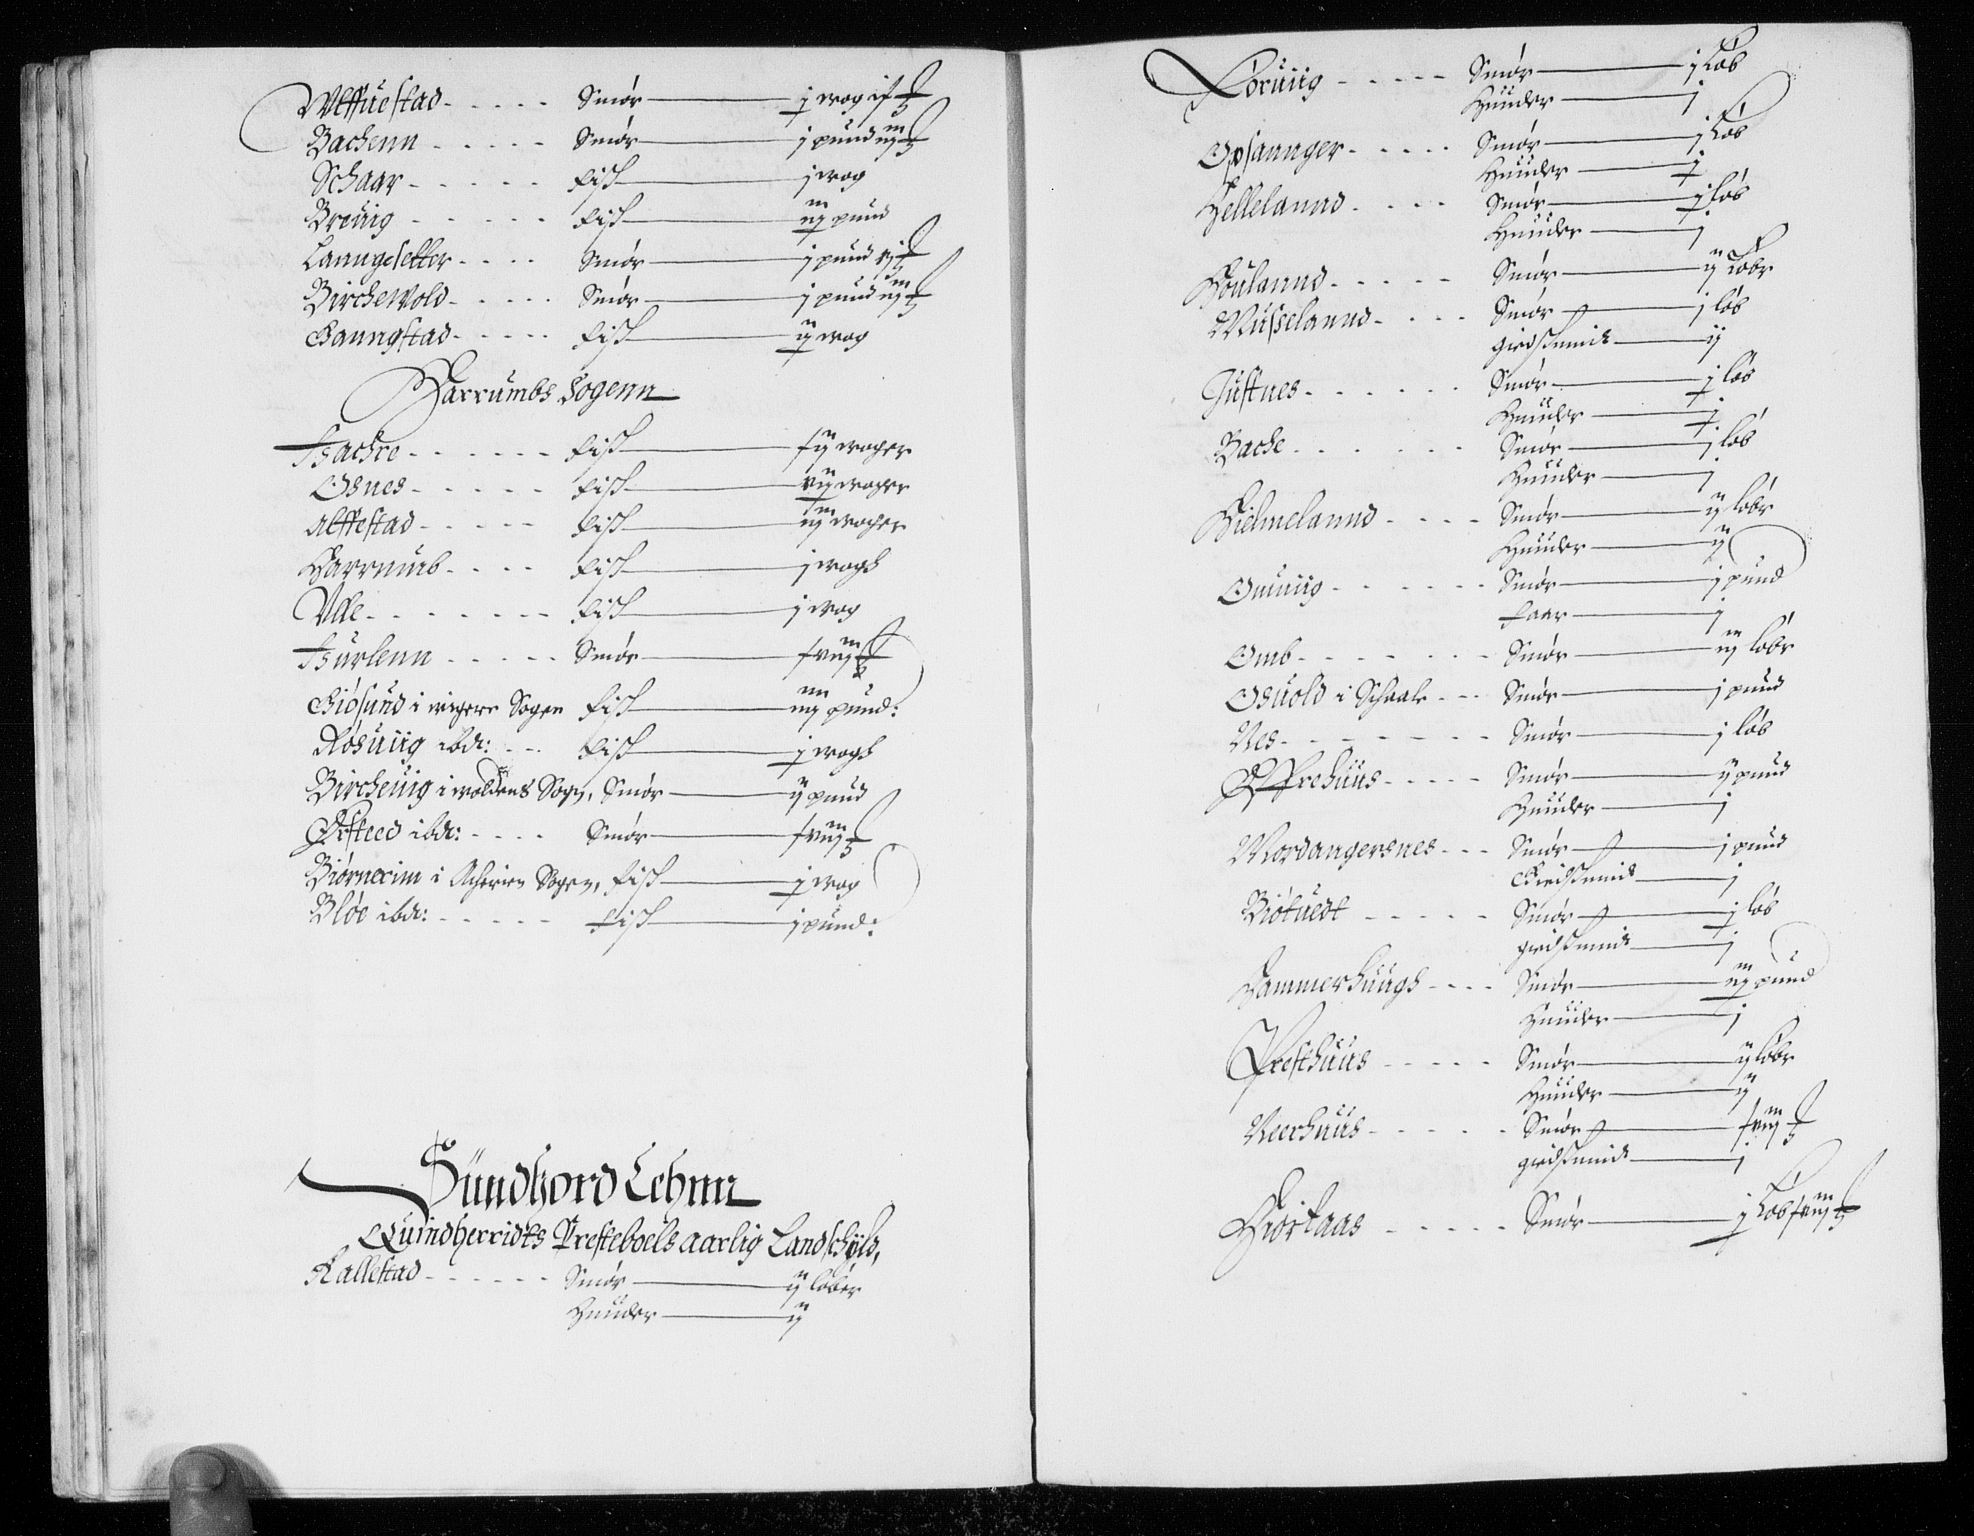 Wlffuestad - - - - - Smør — j wog
Bachenn - - - - - Smør — j pund
Schaar - - - - - Fisk — j wog
Breuig - - - - - Fisk — iij pund
Lanngesetter - - - - Smør — j pund
Birchewold - - - - - Smør — j pund
Gaungstad - - - - - Fisk — ij wog
Harrumbs Sogenn
Hachre - - - - - - Fisk — woger
Osnes - - - - - Fisk — vij woger
Alffestad - - - - - Fisk — iij woger
Harrumb - - - - Fisk — j wogh
Vlle - - - - - - - Fisk — j wog
Hurlenn - - - - - Smør —
Giøsund i Sogen Fisk — iiij pund:
Røsuiig ibd: - - Fisk — j wogh
Bircheuig i woldens Sogn, Smør — ij pund
Ørsteed ibd: - - - - Smør —
Biørnerim i Sogen, Fisk — j wog
Bløe ibd: - - - - - Fisk — j pund:
Sündhord Lehnn
Quindherridts Presteboels aarlig Landschyld,
Kallestad - - - - - - Smør — ij løber
Huuder — ij
Løruiig - - - - - Smør — j Løb
Huuder — j
Opsannger - - - - - Smør — j Løb
Huuder — j
Hellelannd - - - - Smør — j løb
Huuder — j
Houlannd - - - - - Smør — ij Løbr
Musselannd - - - - Smør — j løb
giedskind — ij
Justnes - - - - - - Smør — j løb
Huuder — j
Bache - - - - - - Smør — j løb
Huuder — j
Hielmelannd - - - - Smør — ij løbr
Huuder — ij
Onuiig - - - - - - Smør — j pund
Faar — j
Omb - - - - - - - Smør — iij løbr
Osuold i Schaale - - - Smør — j pund
Nes - - - - - - - Smør — j løb
Øffrehuus - - - - - Smør — ij pund
Huuder — j
Mordangersnes - - - Smør — j pund
Giedskind — j
Biøtuedt - - - - - Smør — j løb
giedskind — j
Hammerhuugh - - - - Smør — iij pund
Huuder — j
Presthuus - - - - - Smør — ij løbr
Huuder — ij
Neerhuus - - - - - Smør —
giedskind — j
Giørkaas - - - - - Smør — j Løb